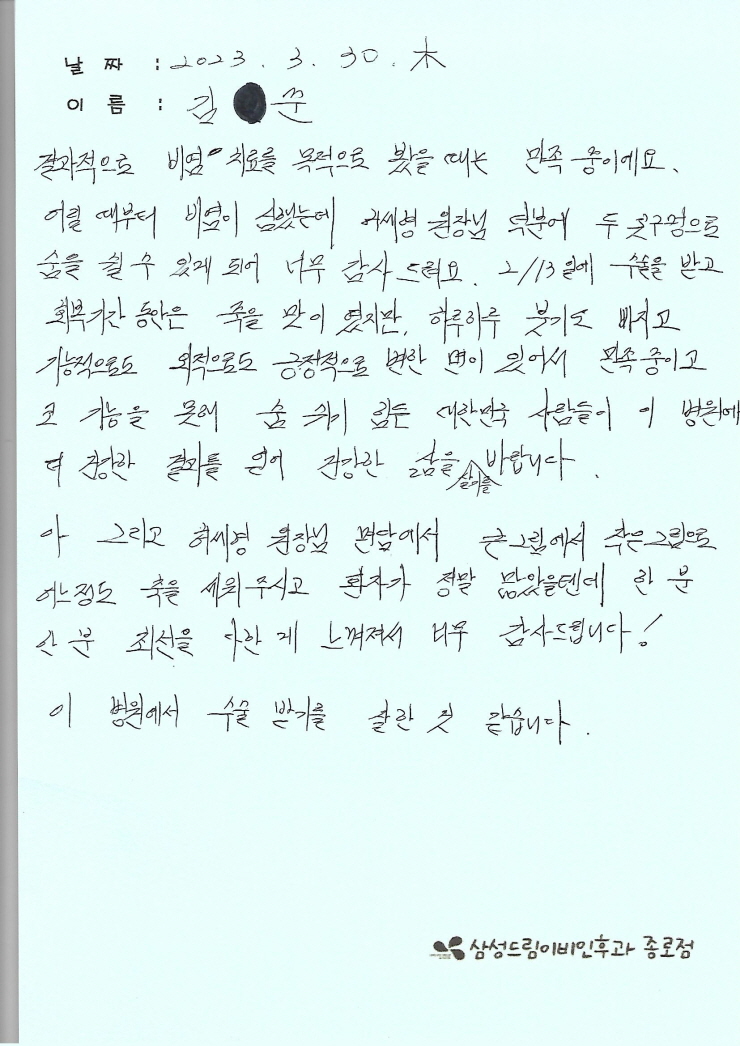 날 짜 : 2023. 3. 30. 木
이 름 : 김 준
결과적으로 비염 치료를 목적으로 봤을 때는 만족 중이에요.
어릴 때부터 비염이 심했는데 허세형 원장님 덕분에 두 콧구멍으로
숨을 쉴 수 있게 되어 너무 감사 드려요. 2/13일에 수술을 받고
회복기간 동안은 죽을 맛이 였지만, 하루하루 붓기도 빠지고
기능적으로도 외적으로도 긍정적으로 변한 면이 있어서 만족 중이고
코 기능을 못해 숨 쉬기 힘든 대한민국 사람들이 이 병원에
더 건강한 결과를 얻어 건강한 삶을 살기를 바랍니다.
아 그리고 허세형 원장님 면담에서 큰그림에서 작은그림으로
어느정도 축을 세워주시고 환자가 정말 많았을텐데 한 분
한 분 최선을 다한 게 느껴져서 너무 감사드립니다!
이 병원에서 수술 받기를 잘한 것 같습니다.
삼성드림이비인후과 종로점